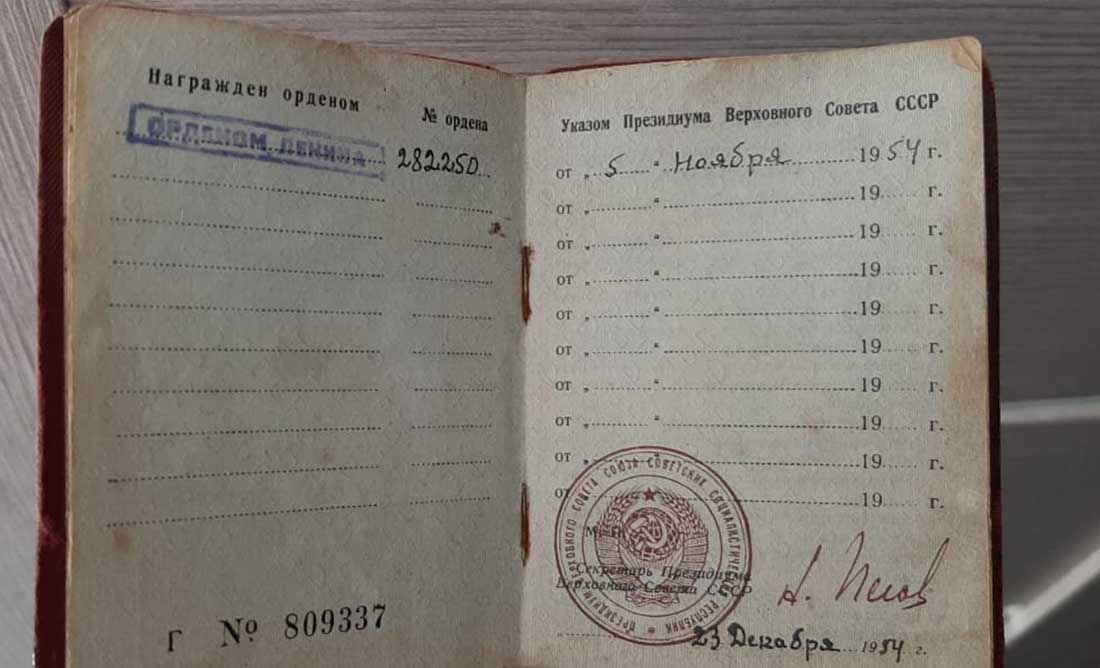 Награжден орденом
№ ордена
ОРДЕНОМ ЛЕНИНА
282250
Г № 809337
Указом Президиума Верховного Совета СССР
от „ 5 “ Ноября 1954 г.
от „ “ 19 г.
от „ “ 19 г.
от „ “ 19 г.
от „ “ 19 г.
от „ “ 19 г.
от „ “ 19 г.
от „ “ 19 г.
от „ “ 19 г.
от „ “ 19 г.
ПРЕЗИДИУМ ВЕРХОВНОГО СОВЕТА СОЮЗА СОВЕТСКИХ СОЦИАЛИСТИЧЕСКИХ РЕСПУБЛИК
Секретарь Президиума
Верховного Совета СССР
Н. Пегов
23 Декабря 1954 г.